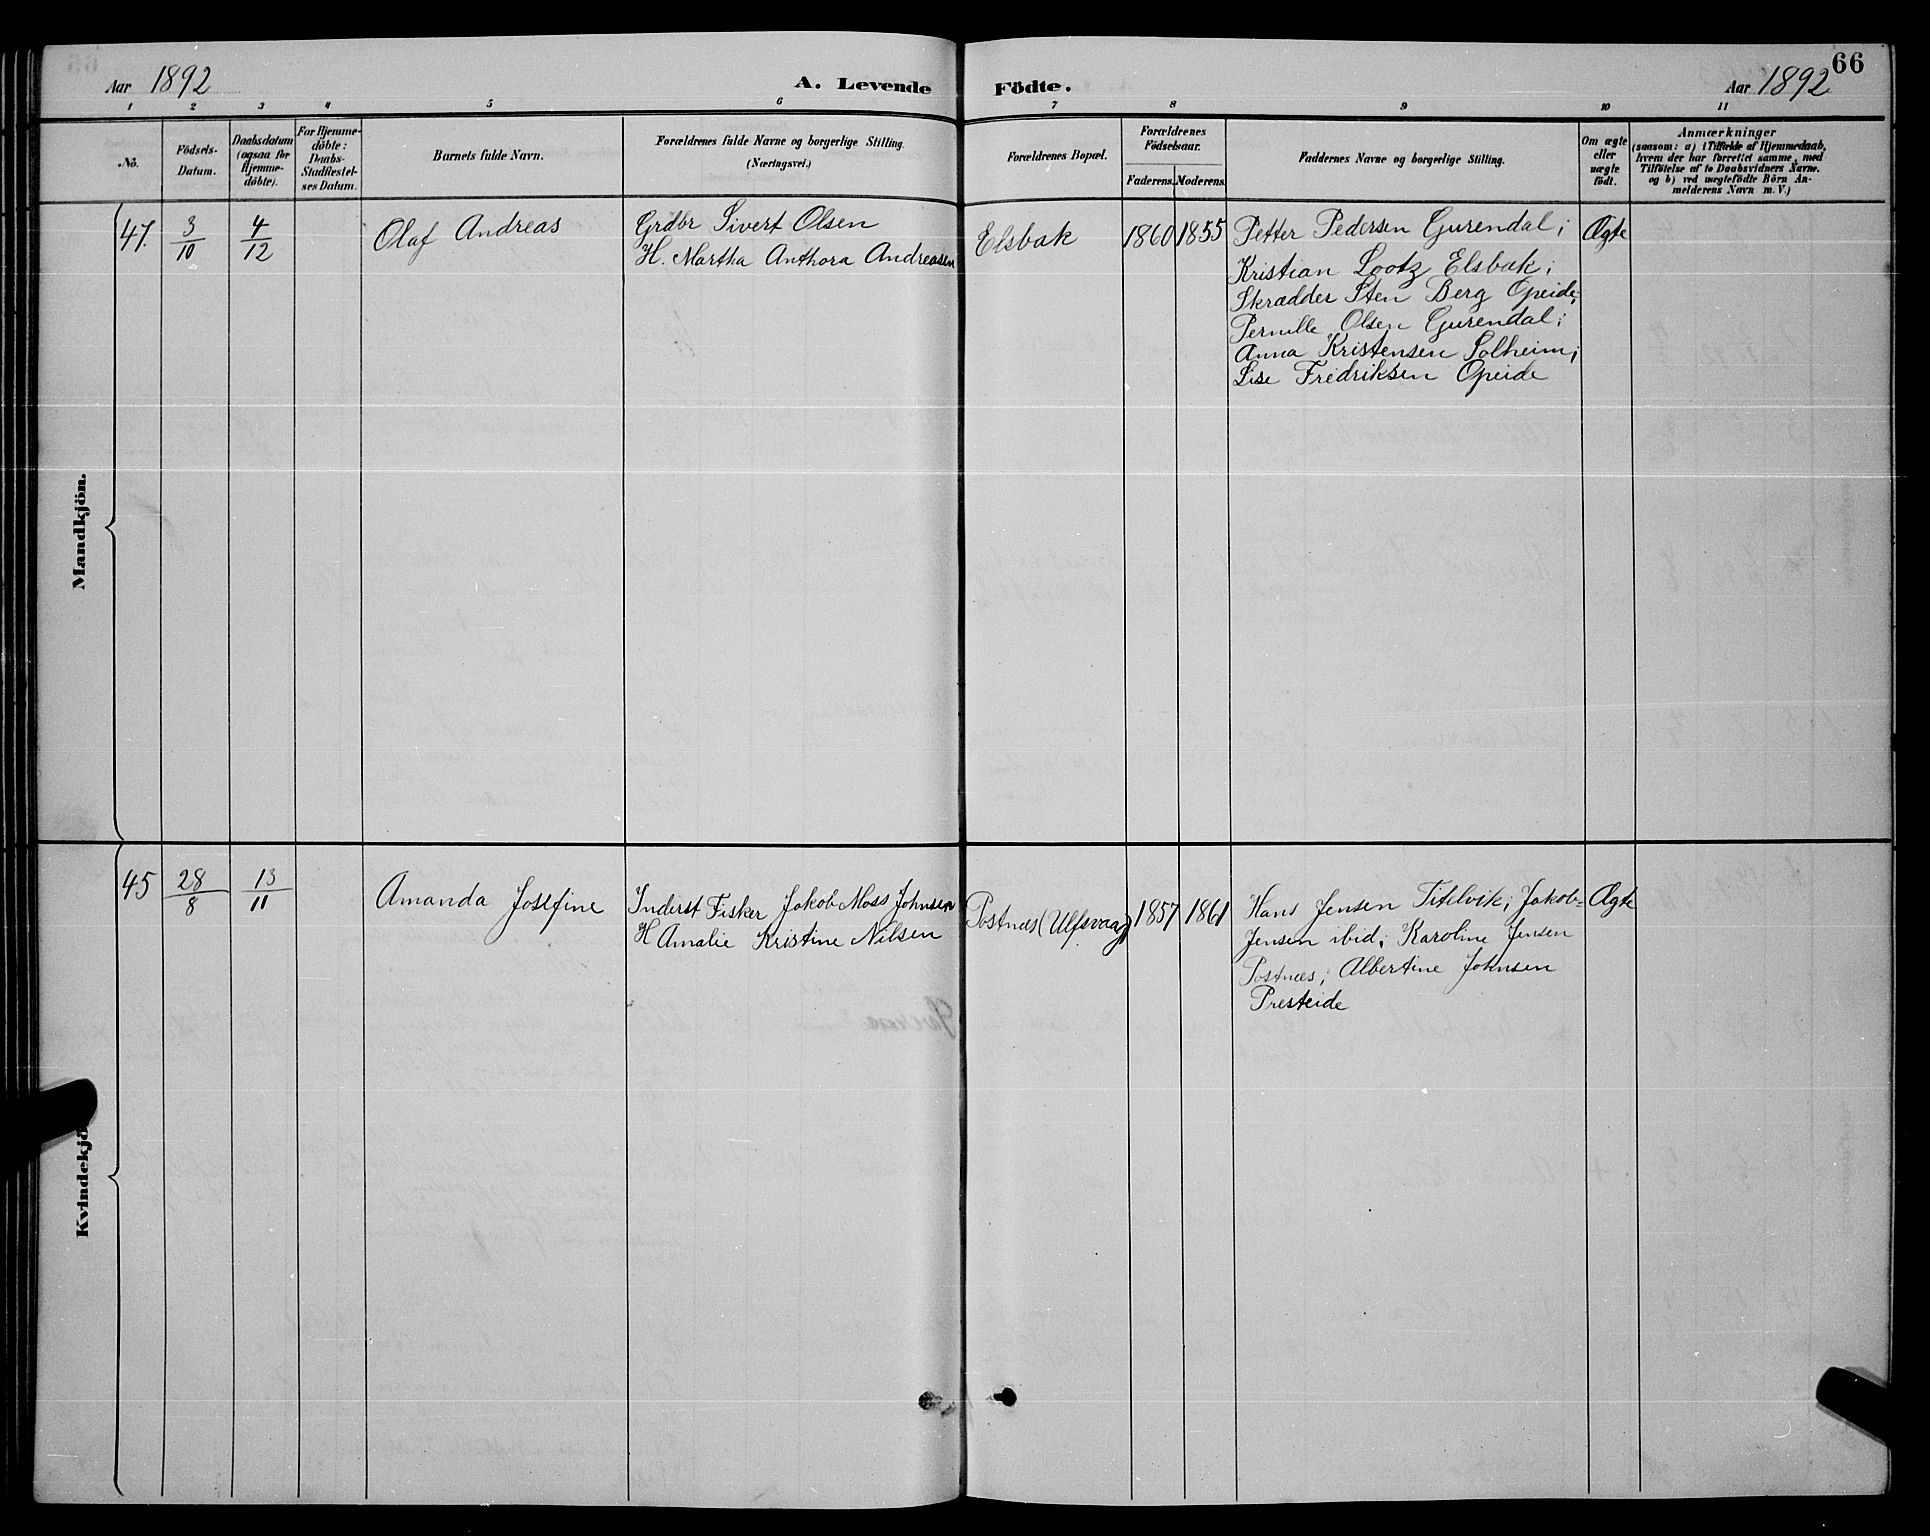 Aar 1892
A. Levende
Födte.
Aar 1892
66
1 2 3 4 5 6 7 8 9 10 11
No.
Födsels-
Datum.
Daabsdatum
(ogsaa for
Hjemme-
döbte).
For Hjemme-
döbte:
Daabs-
Stadfæstel-
ses Datum.
Barnets fulde Navn.
Forældrenes fulde Navne og borgerlige Stilling.
(Næringsvei.)
Forældrenes Bopæl.
Forældrenes
Födselsaar.
Faderens. Moderens.
Faddernes Navne og borgerlige Stilling.
Om ægte
eller
uægte
födt.
Anmærkninger
(saasom: a) i Tilfælde af Hjemmedaab,
hvem der har forrettet samme, med
Tilföielse af to Daabsvidners Navne.
og b) ved uægtefödte Börn An-
melderens Navn m. V.)
Mandkjön.
47.
3/10
4/12
Olaf Andreas
Grdbr Sivert Olsen
H. Martha Anthora Andreasen
Elsbak
1860
1855
Petter Pedersen Gurendal;
Kristian Lootz Elsbak;
Skrædder Sten Berg Opeide;
Pernille Olsen Gurendal;
Anna Kristensen Solheim;
Lise Fredriksen Opeide
Ægte
Kvindekjö
45
28/8
13/11
Amanda Josefine
Inderst Fisker Jakob Moss Johnsen
H Amalie Kristine Nilsen
Postnæs (Ulfsvaag)
1857
1861
Hans Jensen Titelvik; Jakob=
Jensen ibid; Karoline Jensen
Postnæs; Albertine Johnsen
Presteide
Ægte